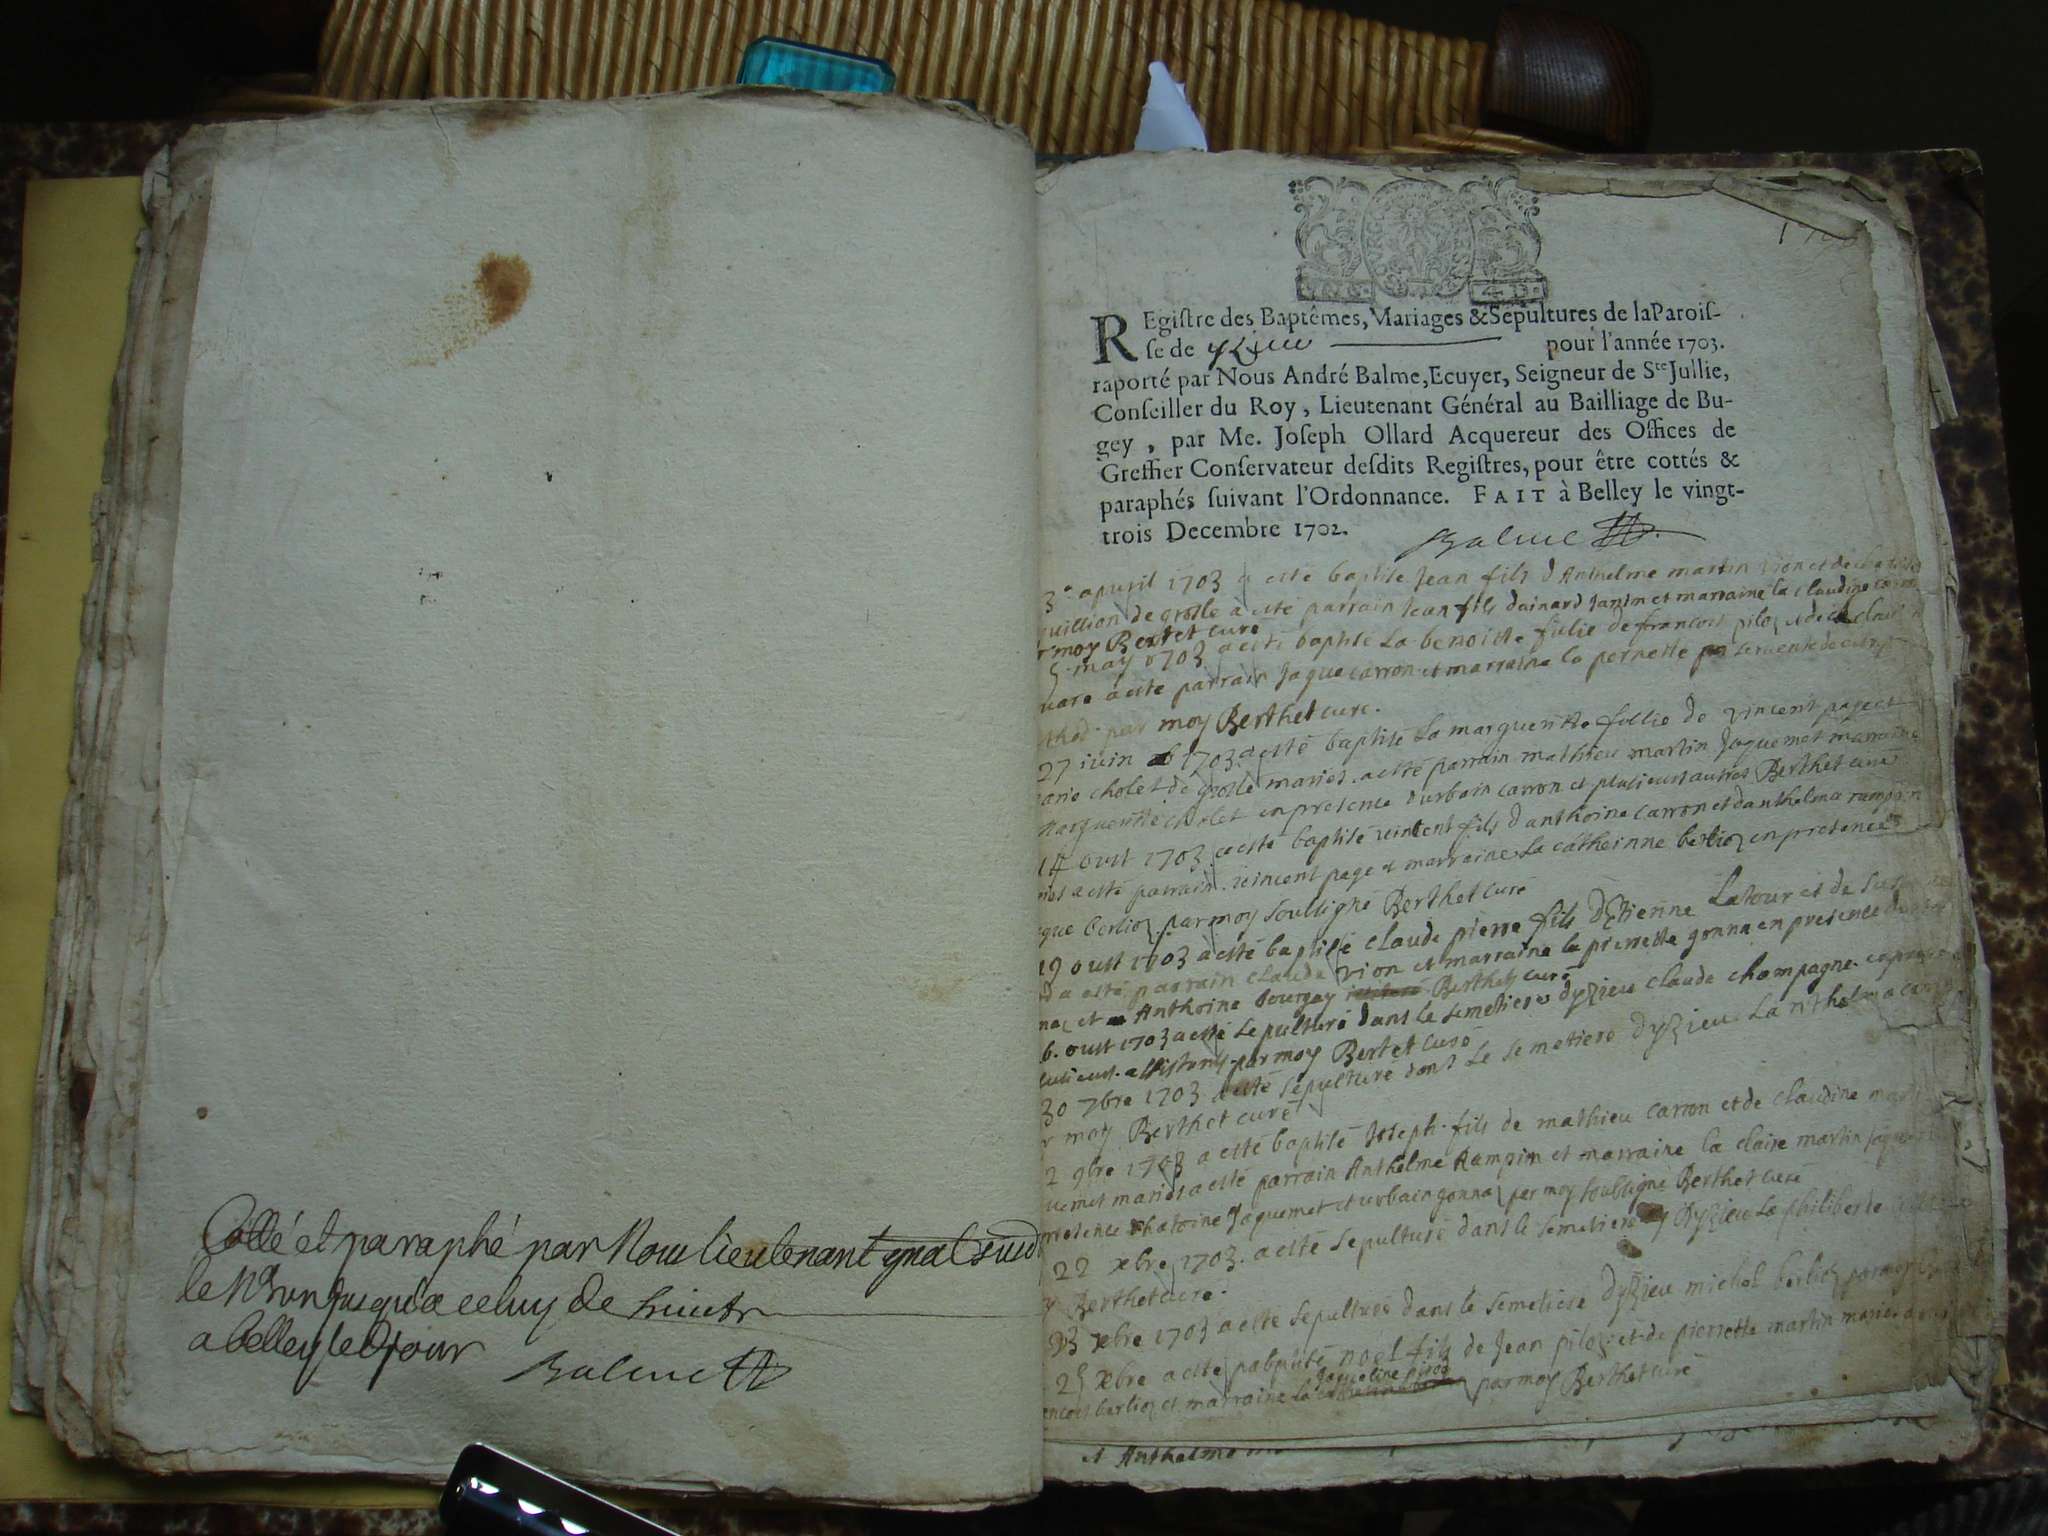 Cotté et paraphé par Nous lieutenant gñal susd
le 1er jusqu'a celuy de huict
a belley led jour
Balme
1703
REgistre des Baptêmes, Mariages & Sepultures de la Parois-
se de yzieu pour l'année 1703.
raporté par Nous André Balme, Ecuyer, Seigneur de Ste Jullie,
Conseiller du Roy, Lieutenant Général au Bailliage de Bu-
gey, par Me. Joseph Ollard Acquereur des Offices de
Greffier Conservateur desdits Registres, pour être cottés &
paraphés suivant l'Ordonnance. FAIT à Belley le vingt-
trois Decembre 1702.
Balme
3e apvril 1703 a esté baptisé Jean fils d Anthelme martin vion et de
de grolle a esté parrain Jean fils dainard Janin et marraine la claudine
moy Bertet curé
5 may 1703 a esté baptisé La benoitte fillie de francois piloz et de
a esté parrain Jaque carron et marraine la pernette
par moy Berthet curé.
27 iuin 1703 a esté baptisé La margueritte fillie de vincent page et
cholet de grolle mariés. a esté parrain mathieu martin Jaquemet marraine
marguerite cholet en presence d urbain carron et plusieurs autres Berthet curé
14 oust 1703 a esté baptisé vintent fils d anthoine carron et d anthelma rampin
a esté parrain vincent page et marraine La catheinne berlioz en presence
berlioz par moy soussigné Berthet curé
19 oust 1703 a esté baptisé claude pierre fils D Etienne Latour et de
a esté parrain claude vion et marraine la pierrette gonna en presence
et Anthoine tourgay Berthet curé
6. oust 1703 a esté sepulturé dans le semetiere dyzieu claude champagne.
assistans par moy Bertet curé
30 7bre 1703 a esté sepulturé dans le semetiere dyzieu La nthelma
moy Berthet curé
2 9bre 1703 a esté baptisé Joseph fils de mathieu carron et de claudine
mariés a esté parrain Anthelme Rampin et marraine la claire martin
presence Jaquemet et urbain gonnaz par moy soussigné Berthet curé
22 xbre 1703. a esté sepulturé dans le semetiere dyzieu La philiberte
Berthet curé.
23 xbre 1703 a esté sepulturé dans le semetiere dyzieu michel berlioz par moy
25 xbre a esté pabptisé noël fils de Jean piloz et de pierrette martin mariés
Jaqueline piroz
berlioz et marraine la par moy Berthet curé
Anthelme